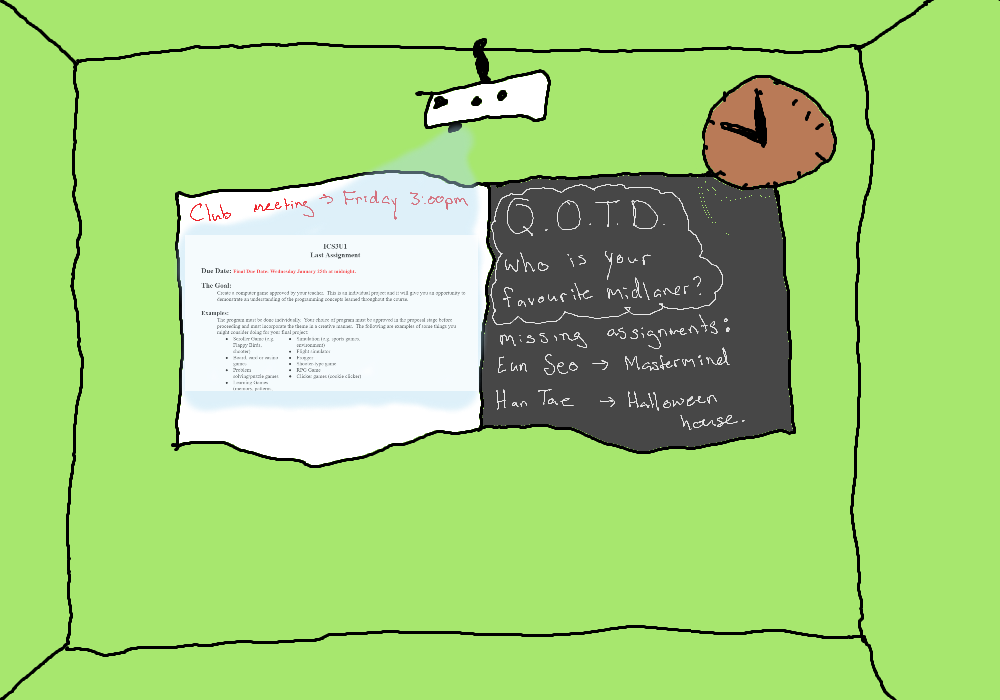 Club meeting → Friday 3:00pm
ICS3U1
Last Assignment
Due Date: Final Due Date: Wednesday January 25th at midnight.
The Goal:
Create a computer game approved by your teacher. This is an individual project and it will give you an opportunity to
demonstrate an understanding of the programming concepts learned throughout the course.
Examples:
The program must be done individually. Your choice of program must be approved in the proposal stage before
proceeding and must incorporate the theme in a creative manner. The following are examples of some things you
might consider doing for your final project:
Flappy Birds,
shooter)
Board, card or casino
games
Problem
solving/puzzle games
Learning Games
(memory, patterns,
Simulation (e.g. sports games,
environment)
Flight simulator
Frogger
Shooter type game
RPG Game
Clicker games (cookie clicker)
Q.O.T.D.
who is your
favourite midlaner?
missing assignments:
Eun Seo → Mastermind
Han Tae → Halloween
house.